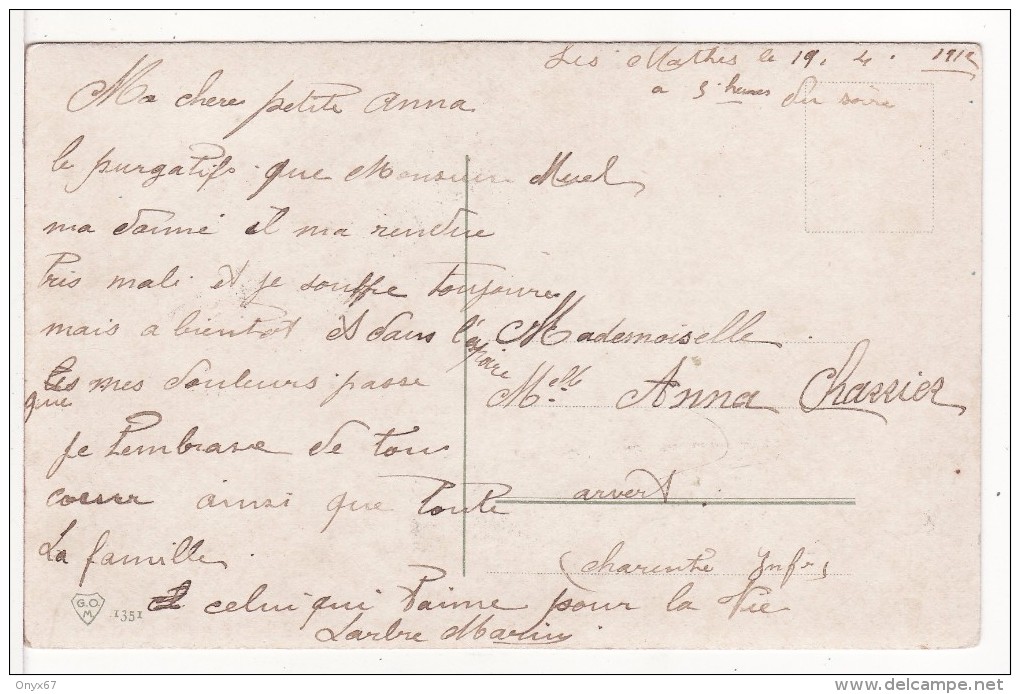 Les Mathes le 19. 4. 1912
a 3 heures du soire
Ma chere petite Anna
le purgatifs que Monsieur Muel
ma donné il ma rendue
tres male et je souffre toujoure
mais a bientot et dans l'espoire
que mes douleurs passe
je t'embrase de tou
coeur ainsi que toute
La famille
celui qui t'aime pour la vie
Larbre Marin
Mademoiselle
Melle Anna Chassier
arvert
(Charente Infre)
G.O.M.
1351
Onyx67
delcampe.net